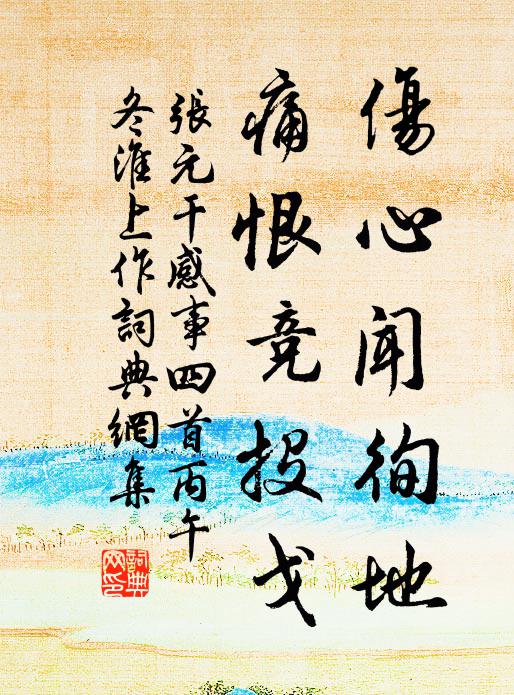 傷心聞徇地
痛恨竞投戈
張元干感事四首丙午
冬淮上作詞典網集
詞典
网印